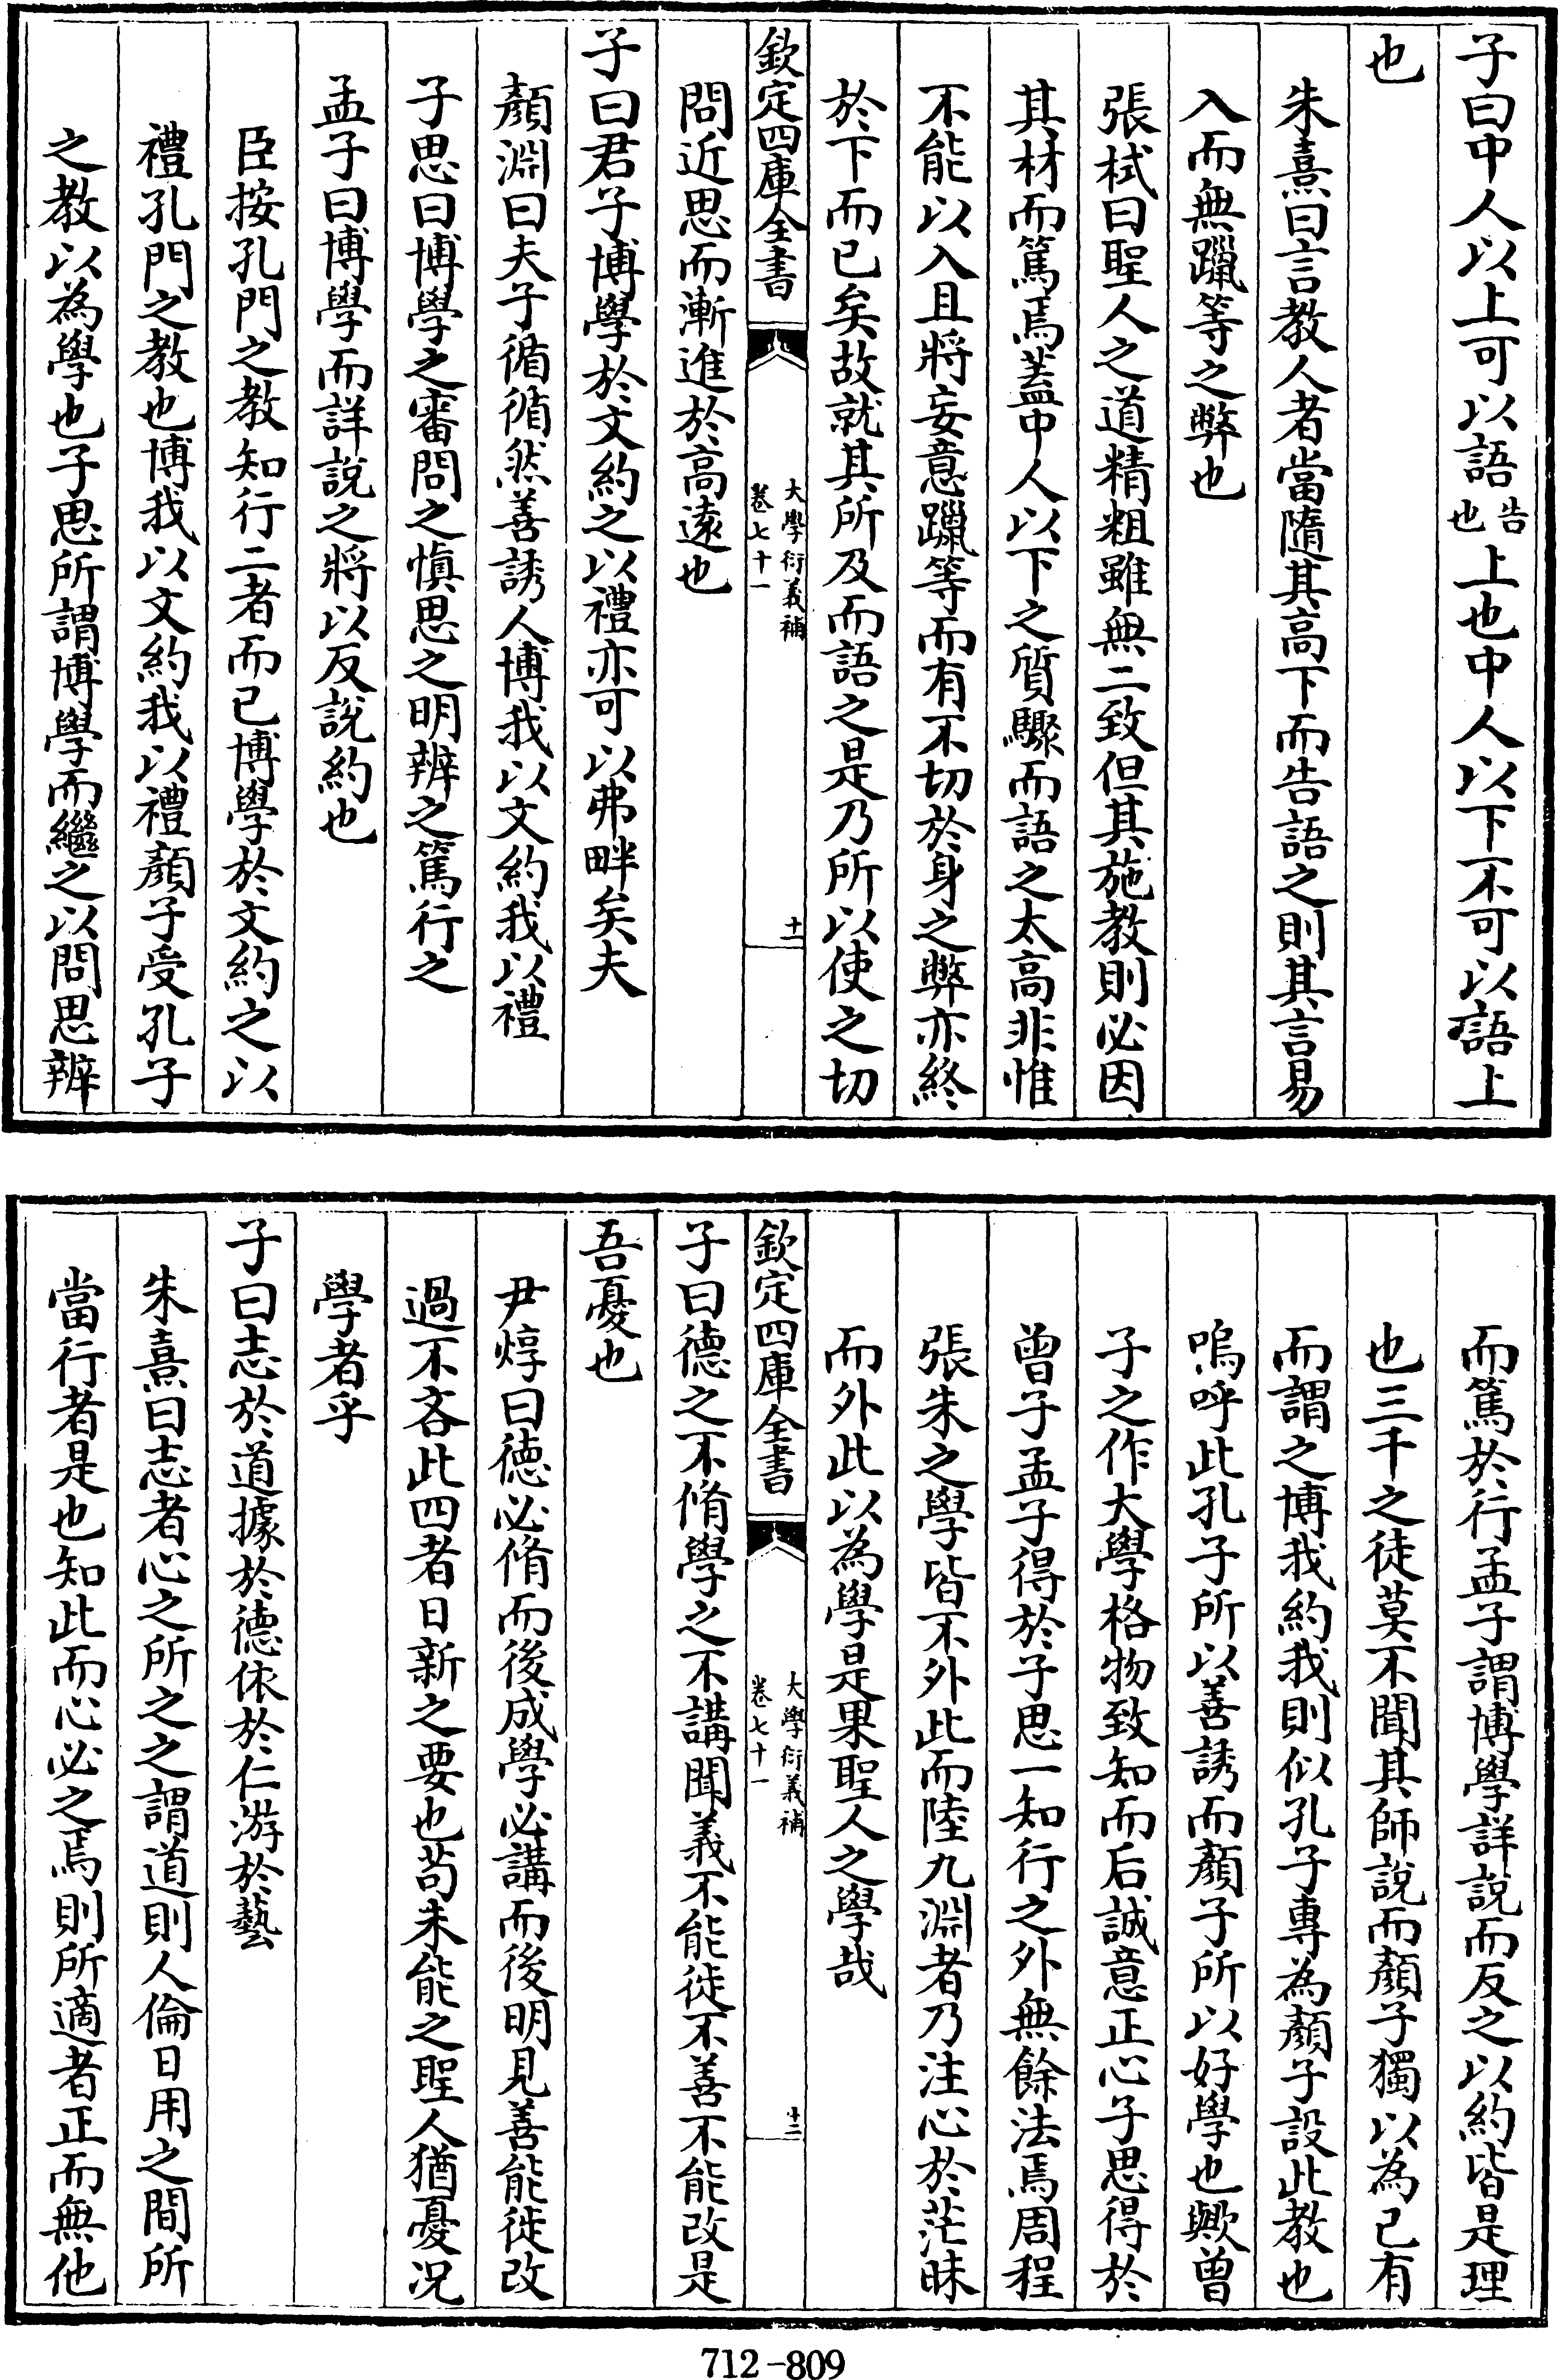 子曰中人以上可以語告也上也中人以下不可以語上
也
朱熹曰言教人者當隨其高下而告語之則其言易
入而無躐等之弊也
張栻曰聖人之道精粗雖無二致但其施教則必因
其材而篤焉蓋中人以下之質驟而語之太高非惟
不能以入且將妄意躐等而有不切於身之弊亦終
於下而已矣故就其所及而語之是乃所以使之切
欽定四庫全書
大學衍義補
卷七十一
十一
問近思而漸進於高遠也
子曰君子博學於文約之以禮亦可以弗畔矣夫
顏淵曰夫子循循然善誘人博我以文約我以禮
子思曰博學之審問之慎思之明辨之篤行之
孟子曰博學而詳說之將以反說約也
臣按孔門之教知行二者而已博學於文約之以
禮孔門之教也博我以文約我以禮顏子受孔子
之教以為學也子思所謂博學而繼之以問思辨
而篤於行孟子謂博學詳說而反之以約皆是理
也三千之徒莫不聞其師說而顏子獨以為已有
而謂之博我約我則似孔子專為顏子設此教也
嗚呼此孔子所以善誘而顏子所以好學也歟曾
子之作大學格物致知而后誠意正心子思得於
曾子孟子得於子思一知行之外無餘法焉周程
張朱之學皆不外此而陸九淵者乃注心於茫昧
而外此以為學是果聖人之學哉
欽定四庫全書
大學衍義補
卷七十一
十二
子曰德之不脩學之不講聞義不能徙不善不能改是
吾憂也
尹焞曰德必脩而後成學必講而後明見善能徙改
過不吝此四者日新之要也苟未能之聖人猶憂况
學者乎
子曰志於道據於德依於仁游於藝
朱熹曰志者心之所之之謂道則人倫日用之間所
當行者是也知此而心必之焉則所適者正而無他
712-809